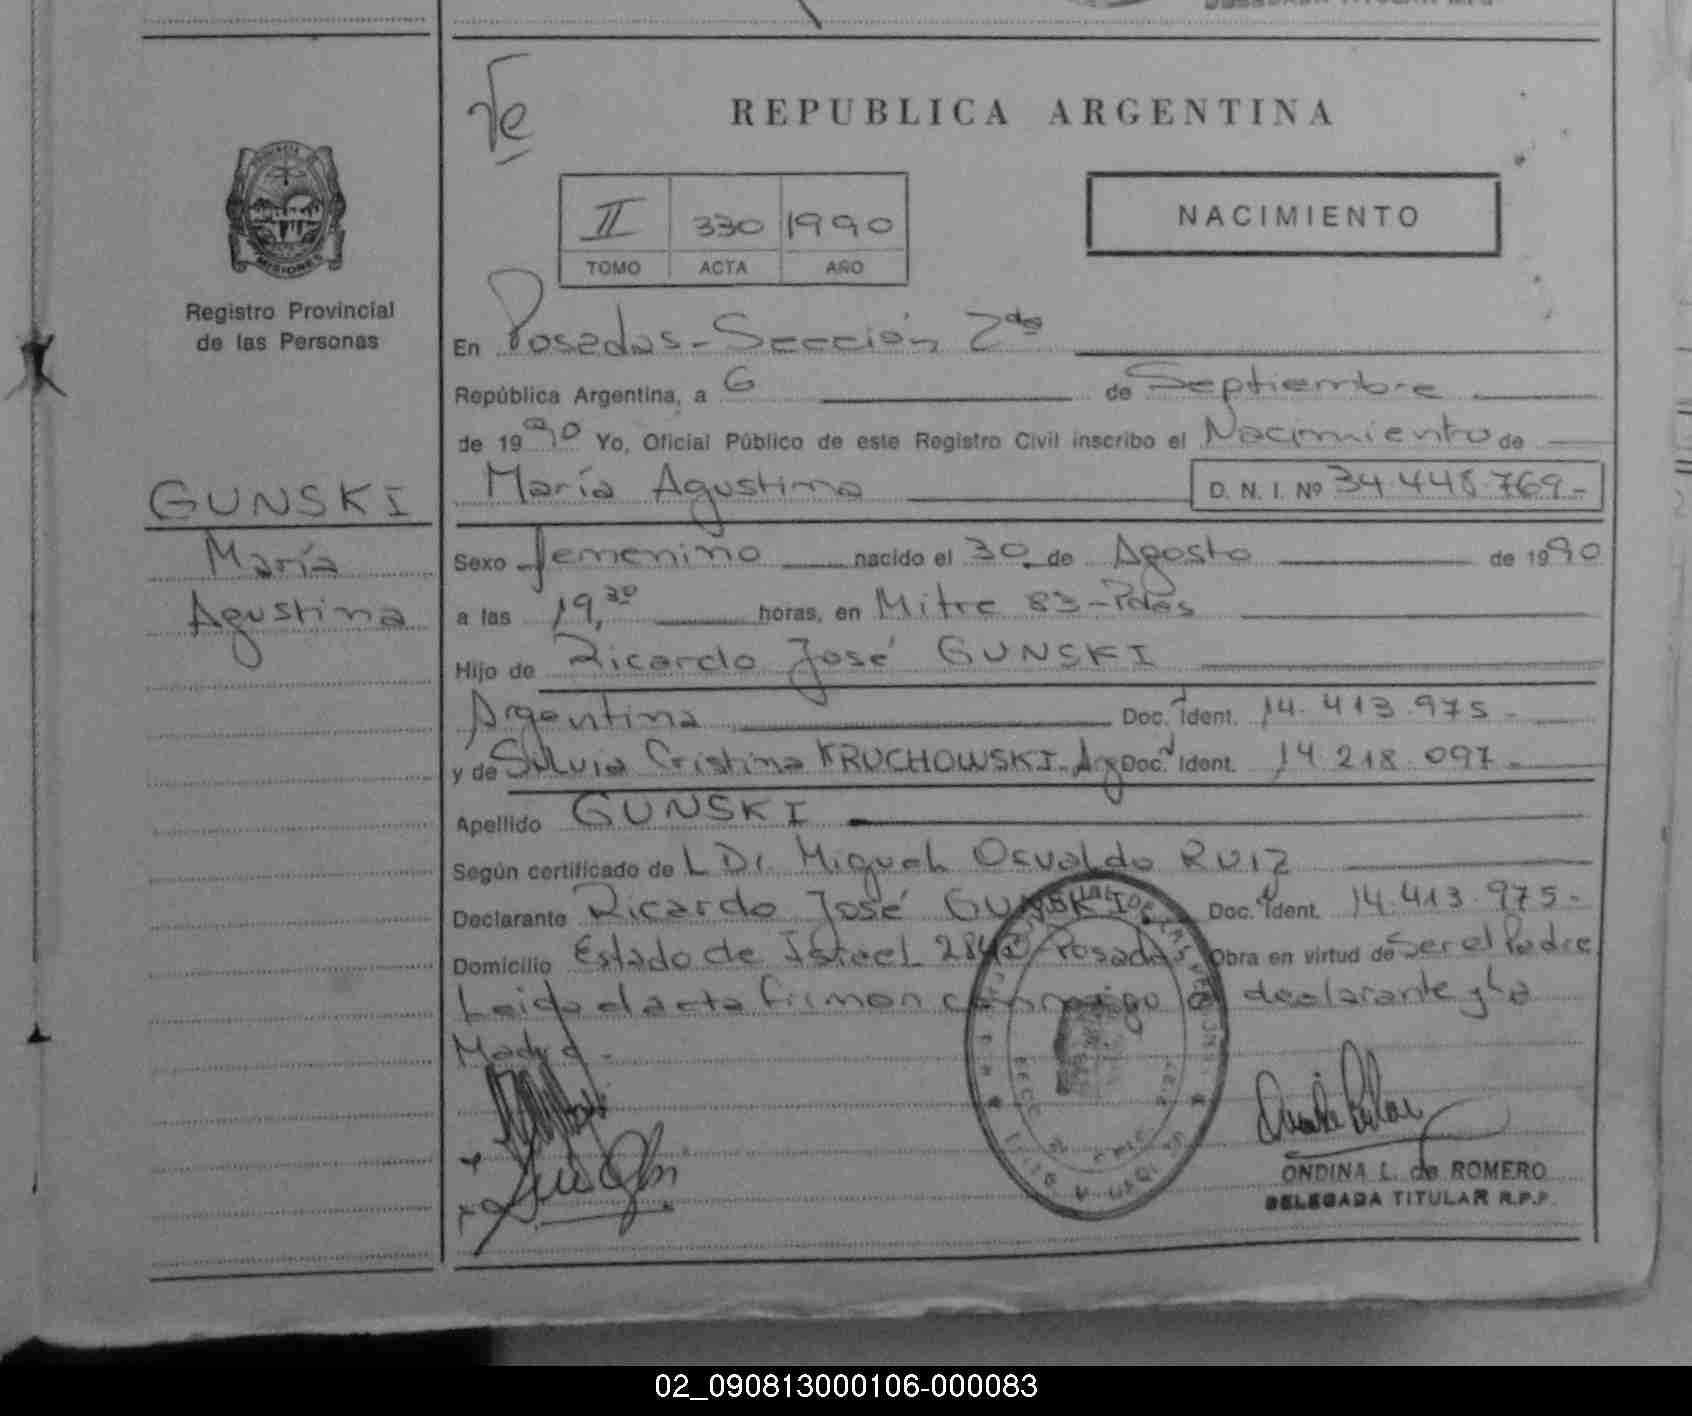 REPUBLICA ARGENTINA
PROVINCIA
MISIONES
Registro Provincial
de las Personas
II 330 1990
TOMO ACTA AÑO
NACIMIENTO
En Posadas - Sección 2da
República Argentina, a 6 de Septiembre
de 1990 Yo, Oficial Público de este Registro Civil inscribo el Nacimiento de
María Agustina D. N. I. Nº 34.448.769-
GUNSKI
María
Agustina
Sexo femenino nacido el 30 de Agosto de 1990
a las 19,30 horas, en Mitre 83 - Pdas
Hijo de Ricardo José GUNSKI
Argentina Doc. Ident. 14.413.975-
y de Silvia Cristina KRUCHOWSKI - Arg Doc. Ident. 14.218.097-
Apellido GUNSKI
Según certificado de L Dr. Miguel Osvaldo RUIZ
Declarante Ricardo José GUNSKI Doc. Ident. 14.413.975-
Domicilio Estado de Israel Posadas Obra en virtud de Ser el Padre
Leida el acta firman conmigo el declarante y la
Madre.-
ONDINA L. de ROMERO
DELEGADA TITULAR R.P.P.
02_090813000106-000083